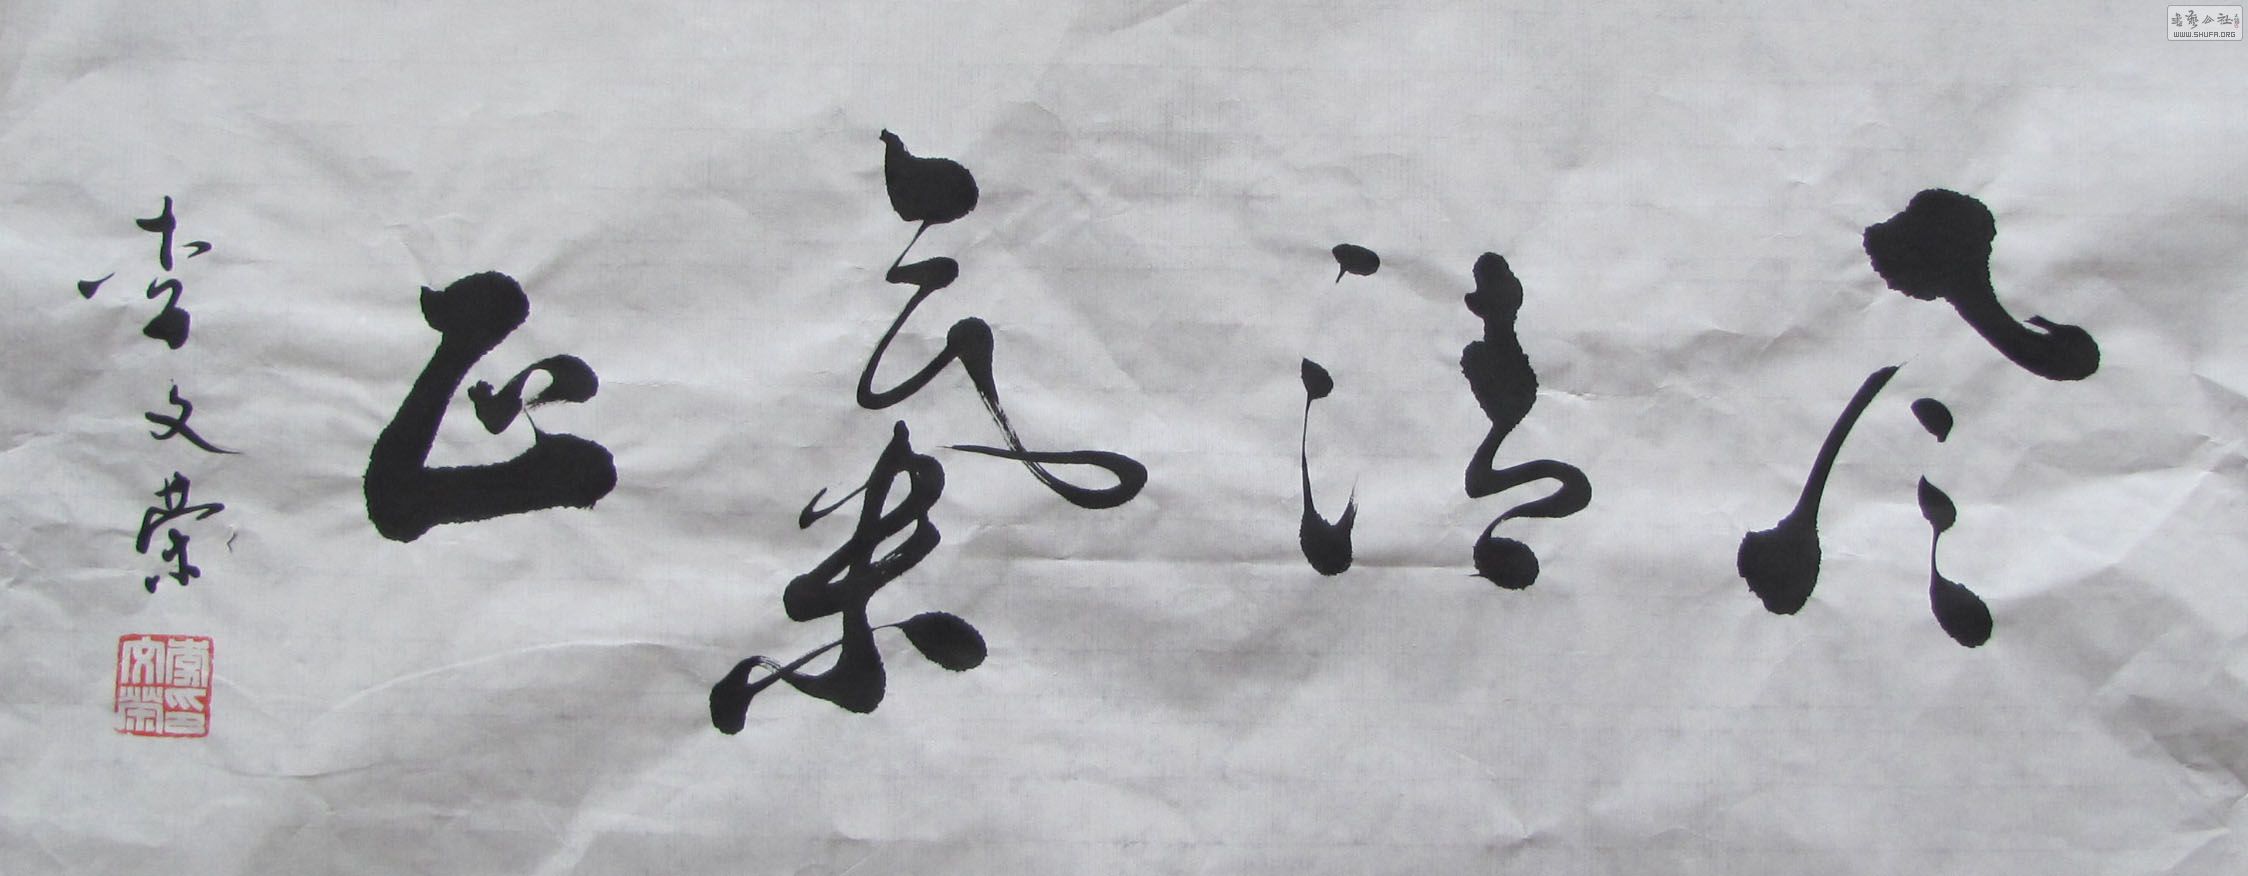 风清氣正
李文荣
李文榮印
书艺公社
WWW.SHUFA.ORG